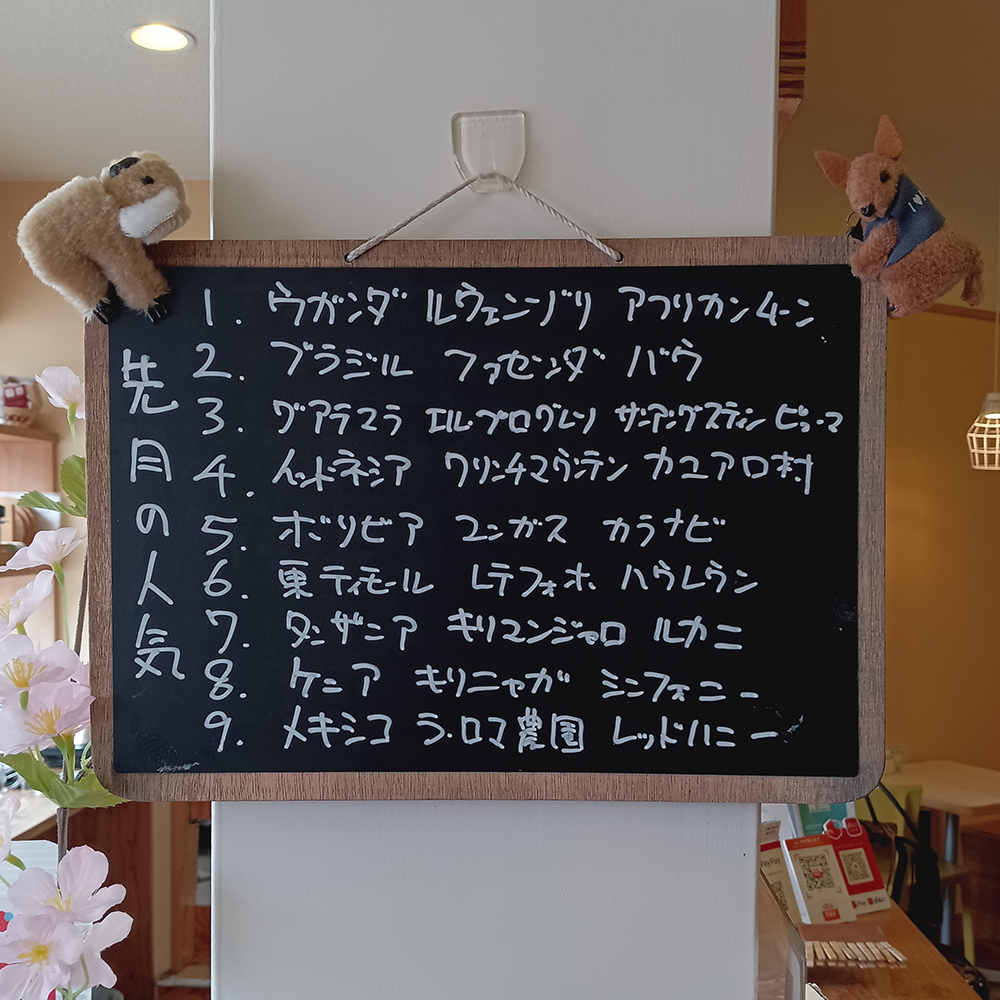 先月の人気
1. ウガンダ ルウェンゾリ アフリカンムーン
2. ブラジル ファゼンダ バウ
3. グアテマラ エル・プログレソ サンアグスティン ピューマ
4. インドネシア クリンチマウンテン カユアロ村
5. ボリビア ユンガス カラナビ
6. 東ティモール レテフォホ ハウレウン
7. タンザニア キリマンジャロ ルカニ
8. ケニア キリニャガ シンフォニー
9. メキシコ ラ・ロマ農園 レッドハニー
PayPay